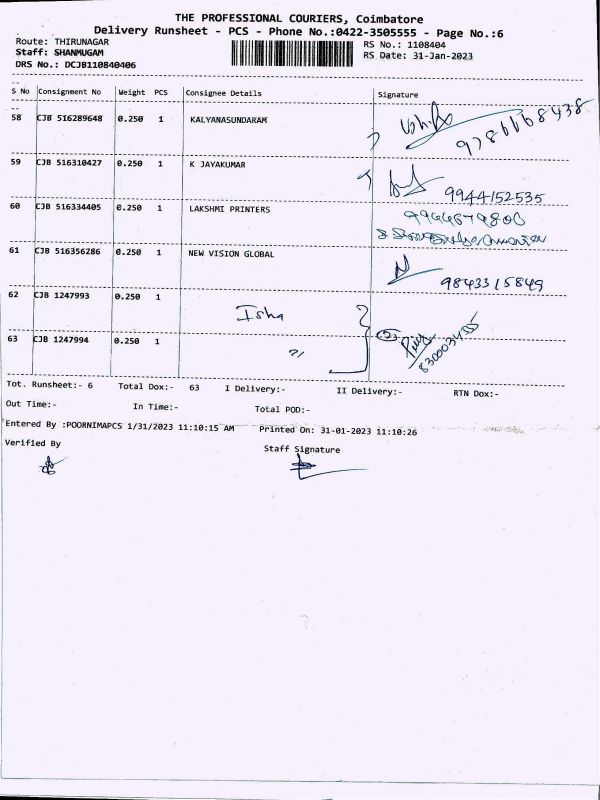 THE PROFESSIONAL COURIERS, Coimbatore
Delivery Runsheet - PCS - Phone No.:0422-3505555 - Page No.:6
Route: THIRUNAGAR RS No.: 1108404
Staff: SHANMUGAM RS Date: 31-Jan-2023
DRS No.: DCJB110840406
S No Consignment No Weight PCS Consignee Details Signature
58 CJB 516289648 0.250 1 KALYANASUNDARAM
59 CJB 516310427 0.250 1 K JAYAKUMAR 9944152535
60 CJB 516334405 0.250 1 LAKSHMI PRINTERS
61 CJB 516356286 0.250 1 NEW VISION GLOBAL 9843315849
62 CJB 1247993 0.250 1 Isha
63 CJB 1247994 0.250 1 "
Tot. Runsheet:- 6 Total Dox:- 63 I Delivery:- II Delivery:- RTN Dox:-
Out Time:- In Time:- Total POD:-
Entered By :POORNIMAPCS 1/31/2023 11:10:15 AM Printed On: 31-01-2023 11:10:26
Verified By Staff Signature